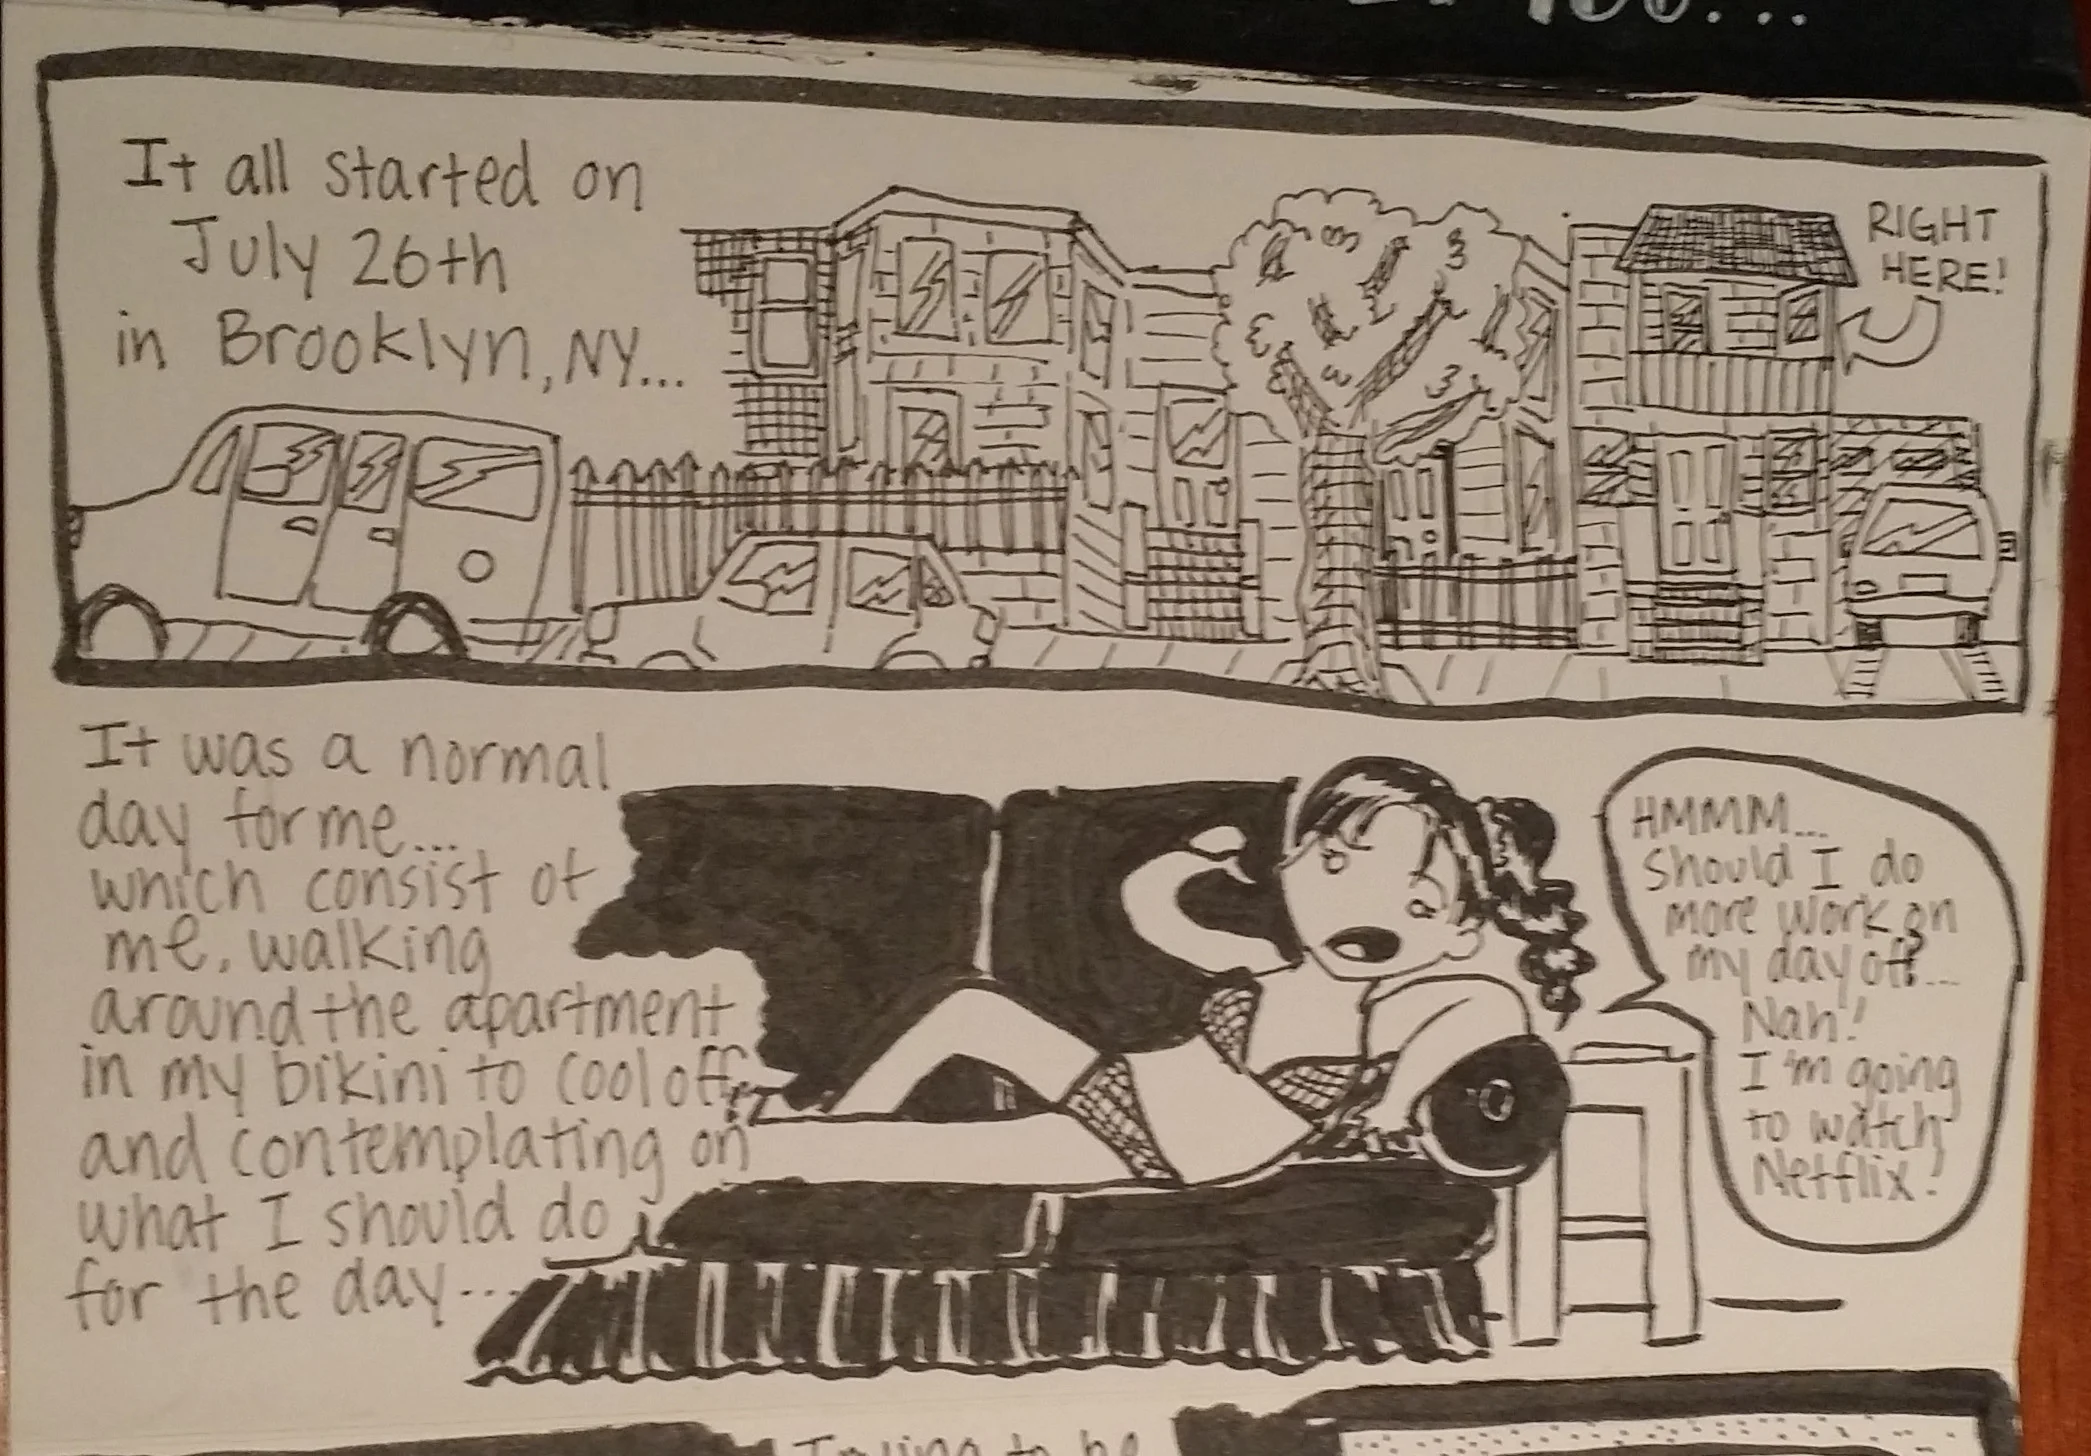 It all started on
July 26th
in Brooklyn, NY...
RIGHT
HERE!
It was a normal
day for me...
which consist of
me, walking
around the apartment
in my bikini to cool off
and contemplating on
what I should do
for the day...
HMMM...
Should I do
more work on
my day off?...
Nah!
I'm going
to watch
Netflix!
to be